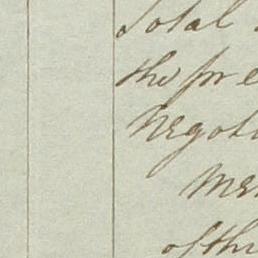 Total
the pre
Negoti
Mer
of thi